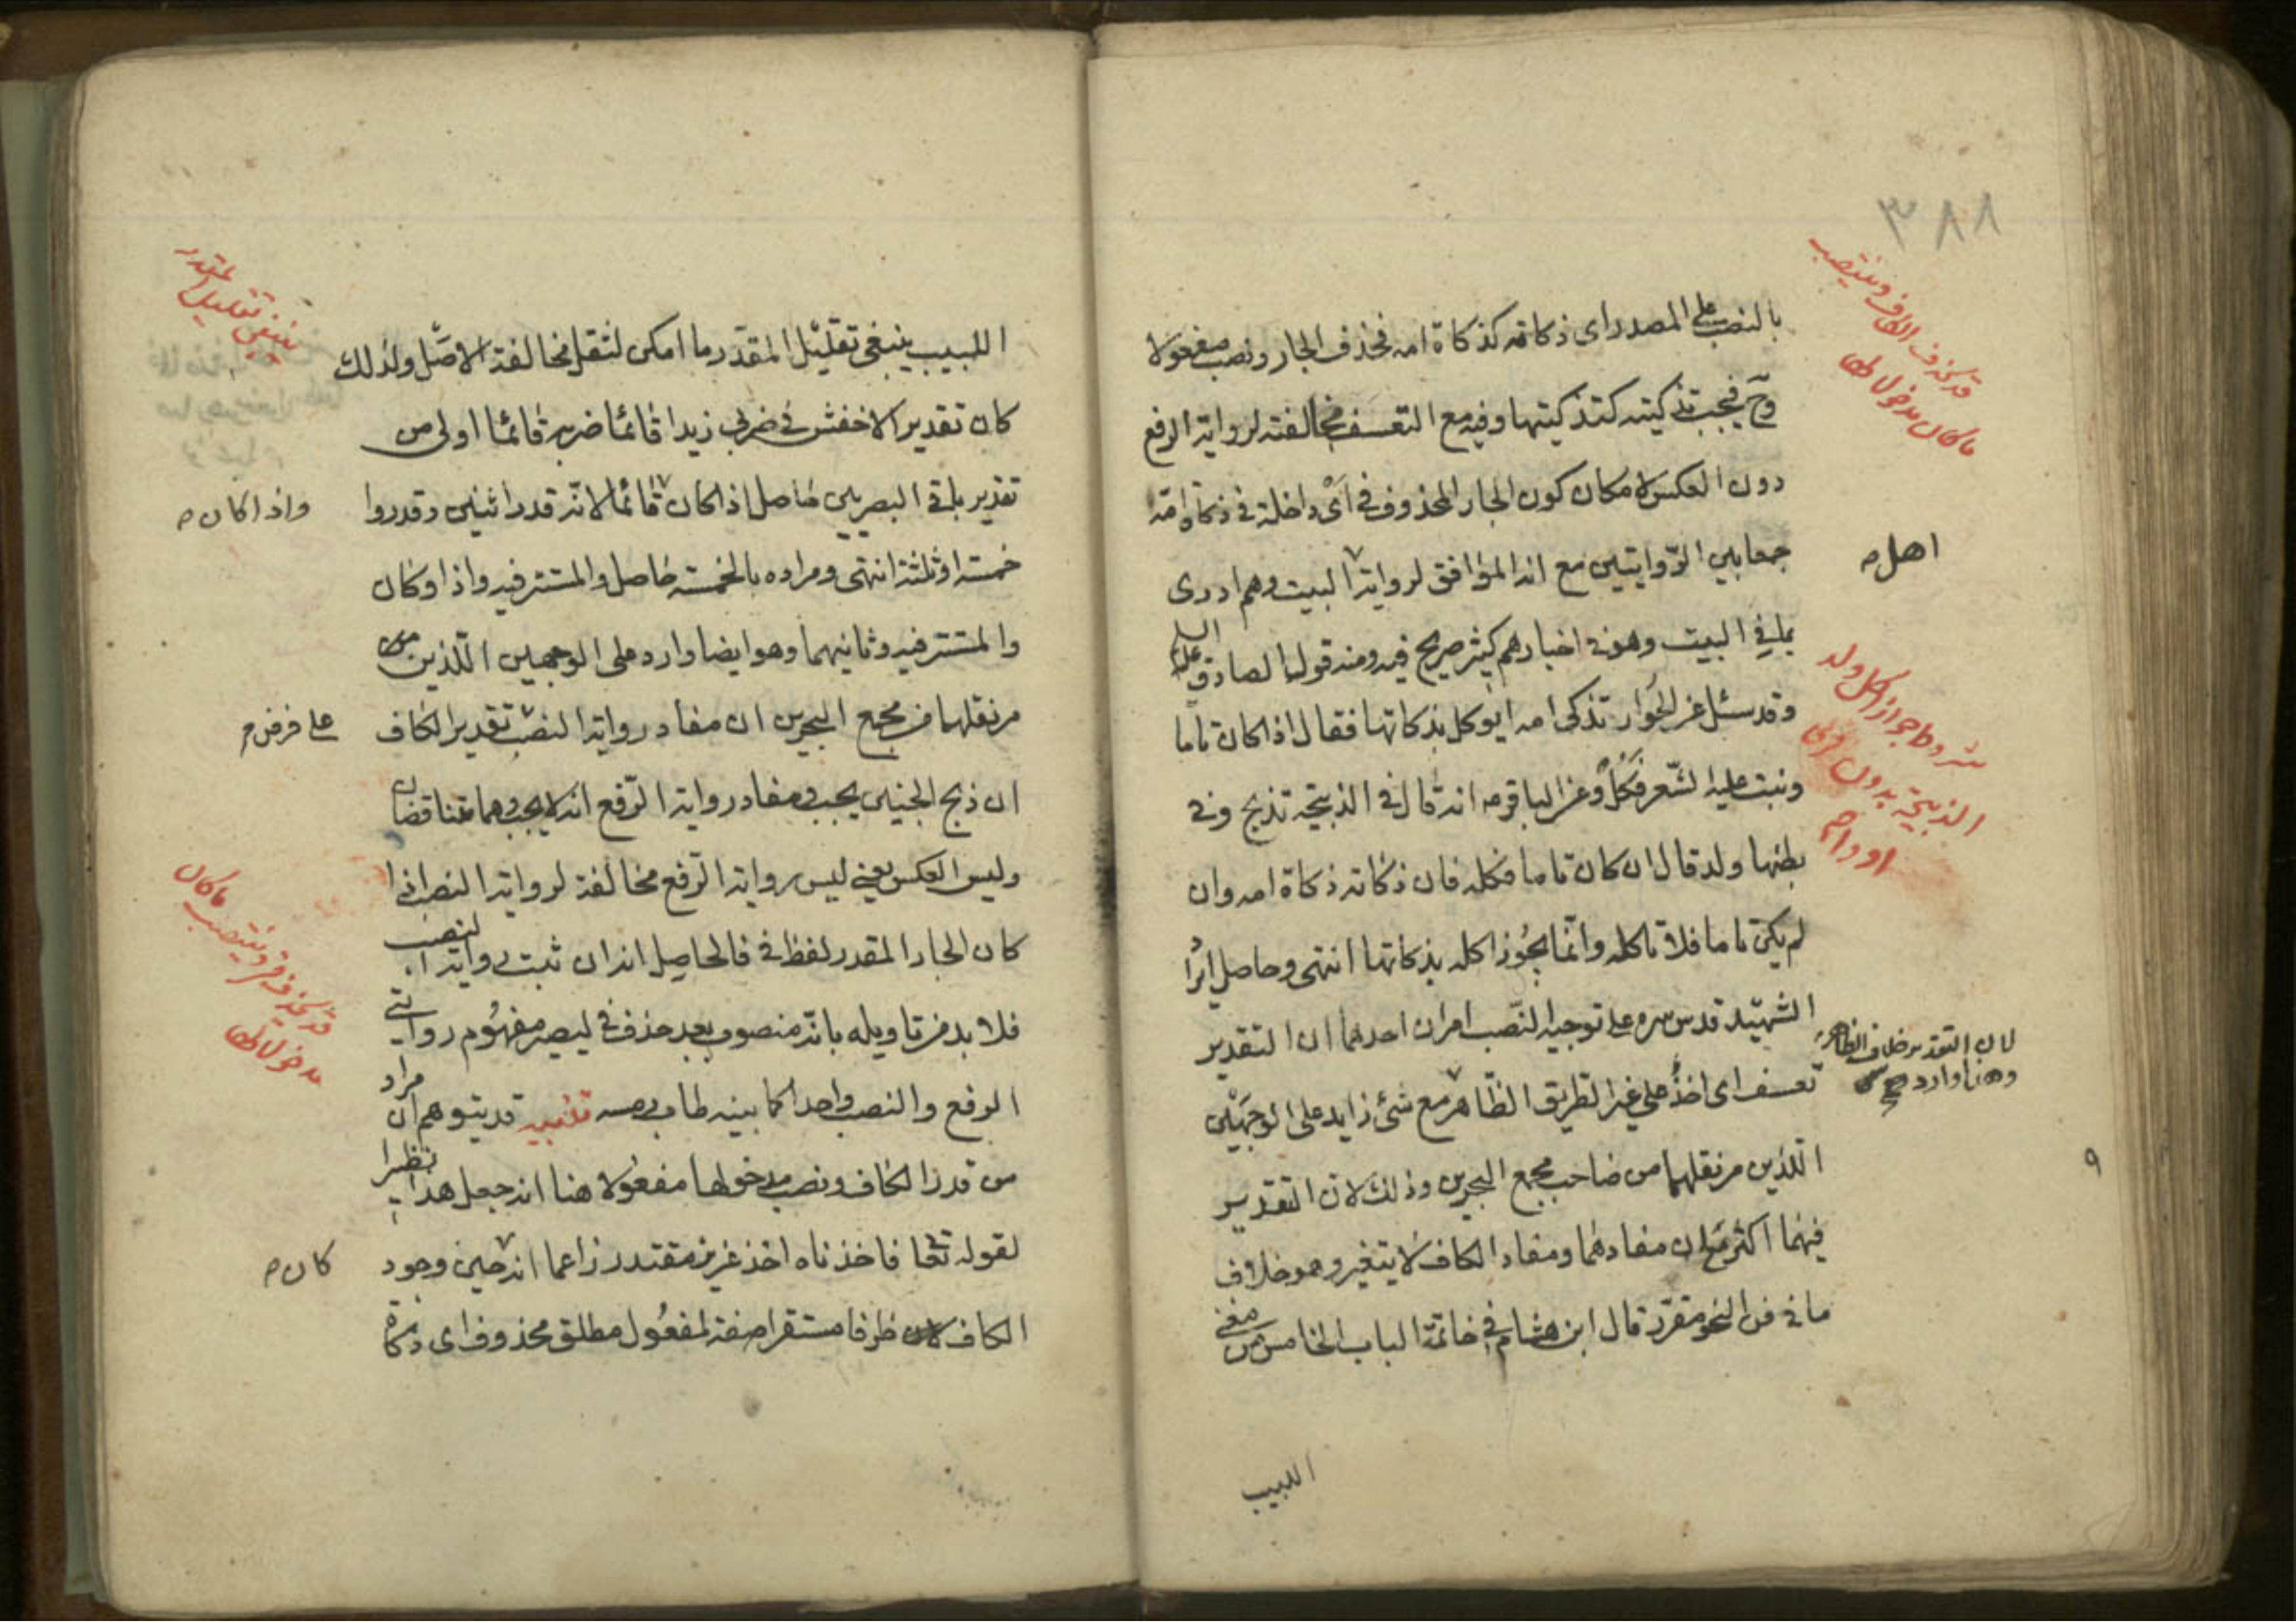 ٣٨٨
قد يحذف الكاف وينتصب
ما كان مدخولا لها
بالنصب على المصدر اى ذكاته كذكاة امه فحذف الجار ونصب مفعولا
وح فيجب تذكيته كتذكيتها وفيه مع التعسف مخالفته لرواية الرفع
دون العكس لامكان كون الجار المحذوف في اى داخلة في ذكاة امه
جمعا بين الروايتين مع انه الموافق لرواية البيت وهم ادرى
اهل
بما في البيت وهو في اخبارهم كثير صريح فيه ومنه قول الصادق عليه السلم
وقد سئل عن الحوار تذكى امه ايؤكل بذكاتها فقال اذا كان تاما
ونبت عليه الشعر فكل وعن الباقر ع انه قال في الذبيحة تذبح وفي
شروط جواز اكل ولد
الذبيحة بدون فرى
اوداج
بطنها ولد قال ان كان تاما فكله فان ذكاته ذكاة امه وان
لم يكن تاما فلا تاكله وانما يجوز اكله بذكاتها انتهى وحاصل ايراد
الشهيد قدس سره على توجيه النصب امران احدهما ان التقدير
لان التقدير خلاف الظاهر
وهذا وارد
تعسف اى اخذ على غير الطريق الظاهر مع شئ زايد على الوجهين
اللذين مر نقلهما من صاحب مجمع البحرين وذلك لان التقدير
فيهما اكثر مع ان مفادهما ومفاد الكاف لا يتغير وهو خلاف
ما في فن النحو مقرر قال ابن هشام في خاتمة الباب الخامس من مغنى
اللبيب
ينبغي تقليل المقدر
اللبيب ينبغي تقليل المقدر ما امكن لتقل مخالفة الاصل ولذلك
كان تقدير الاخفش في ضربي زيدا قائما ضربه قائما اولى من
تقدير باقي البصريين حاصل اذا كان قائما لانه قدر اثنين وقدروا
واذا كان
خمسة او ثلثة انتهى ومراده بالخمسة حاصل والمستتر فيه واذا وكان
والمستتر فيه وثانيهما وهو ايضا وارد على الوجهين اللذين
مر نقلهما من مجمع البحرين ان مفاد رواية النصب تقدير الكاف
على فرض
ان ذبح الجنين يجب ومفاد رواية الرفع انه لا يجب وهما متناقضان
وليس العكس يعني ليس رواية الرفع مخالفة لرواية النصب اذا
كان الجار المقدر لفظ في فالحاصل انه ان ثبت رواية النصب
ما كان
قد يحذف في وينتصب
مدخولا لها
فلا بد من تاويله بانه منصوب بعد حذف في ليصير مفهوم روايتى
الرفع والنصب واحدا كما بينه طاب رمسه تنبيه قد يتوهم ان مراد
من قدر الكاف ونصب مدخولها مفعولا هنا انه جعل هذا نظيرا
لقوله تعا فاخذناه اخذ عزيز مقتدر زاعما انه حين وجود
كان
الكاف ظرفا مستقرا صفة لمفعول مطلق محذوف اى ذكاة